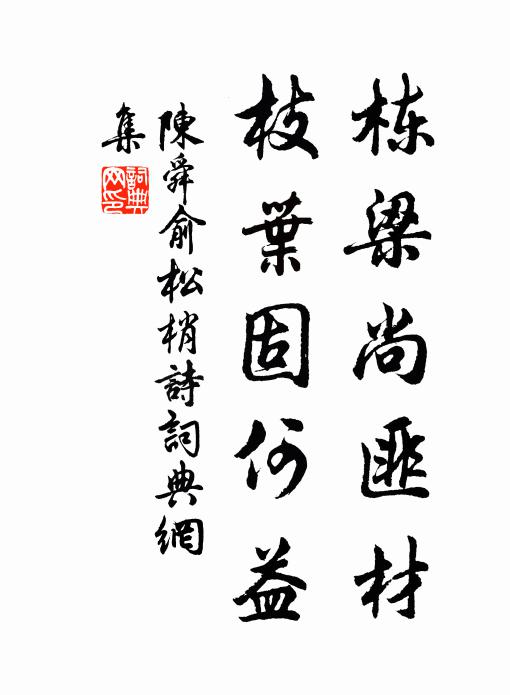 栋梁尚匪材
枝葉固何益
陳舜俞松梢詩詞典網
集
詞典
网印